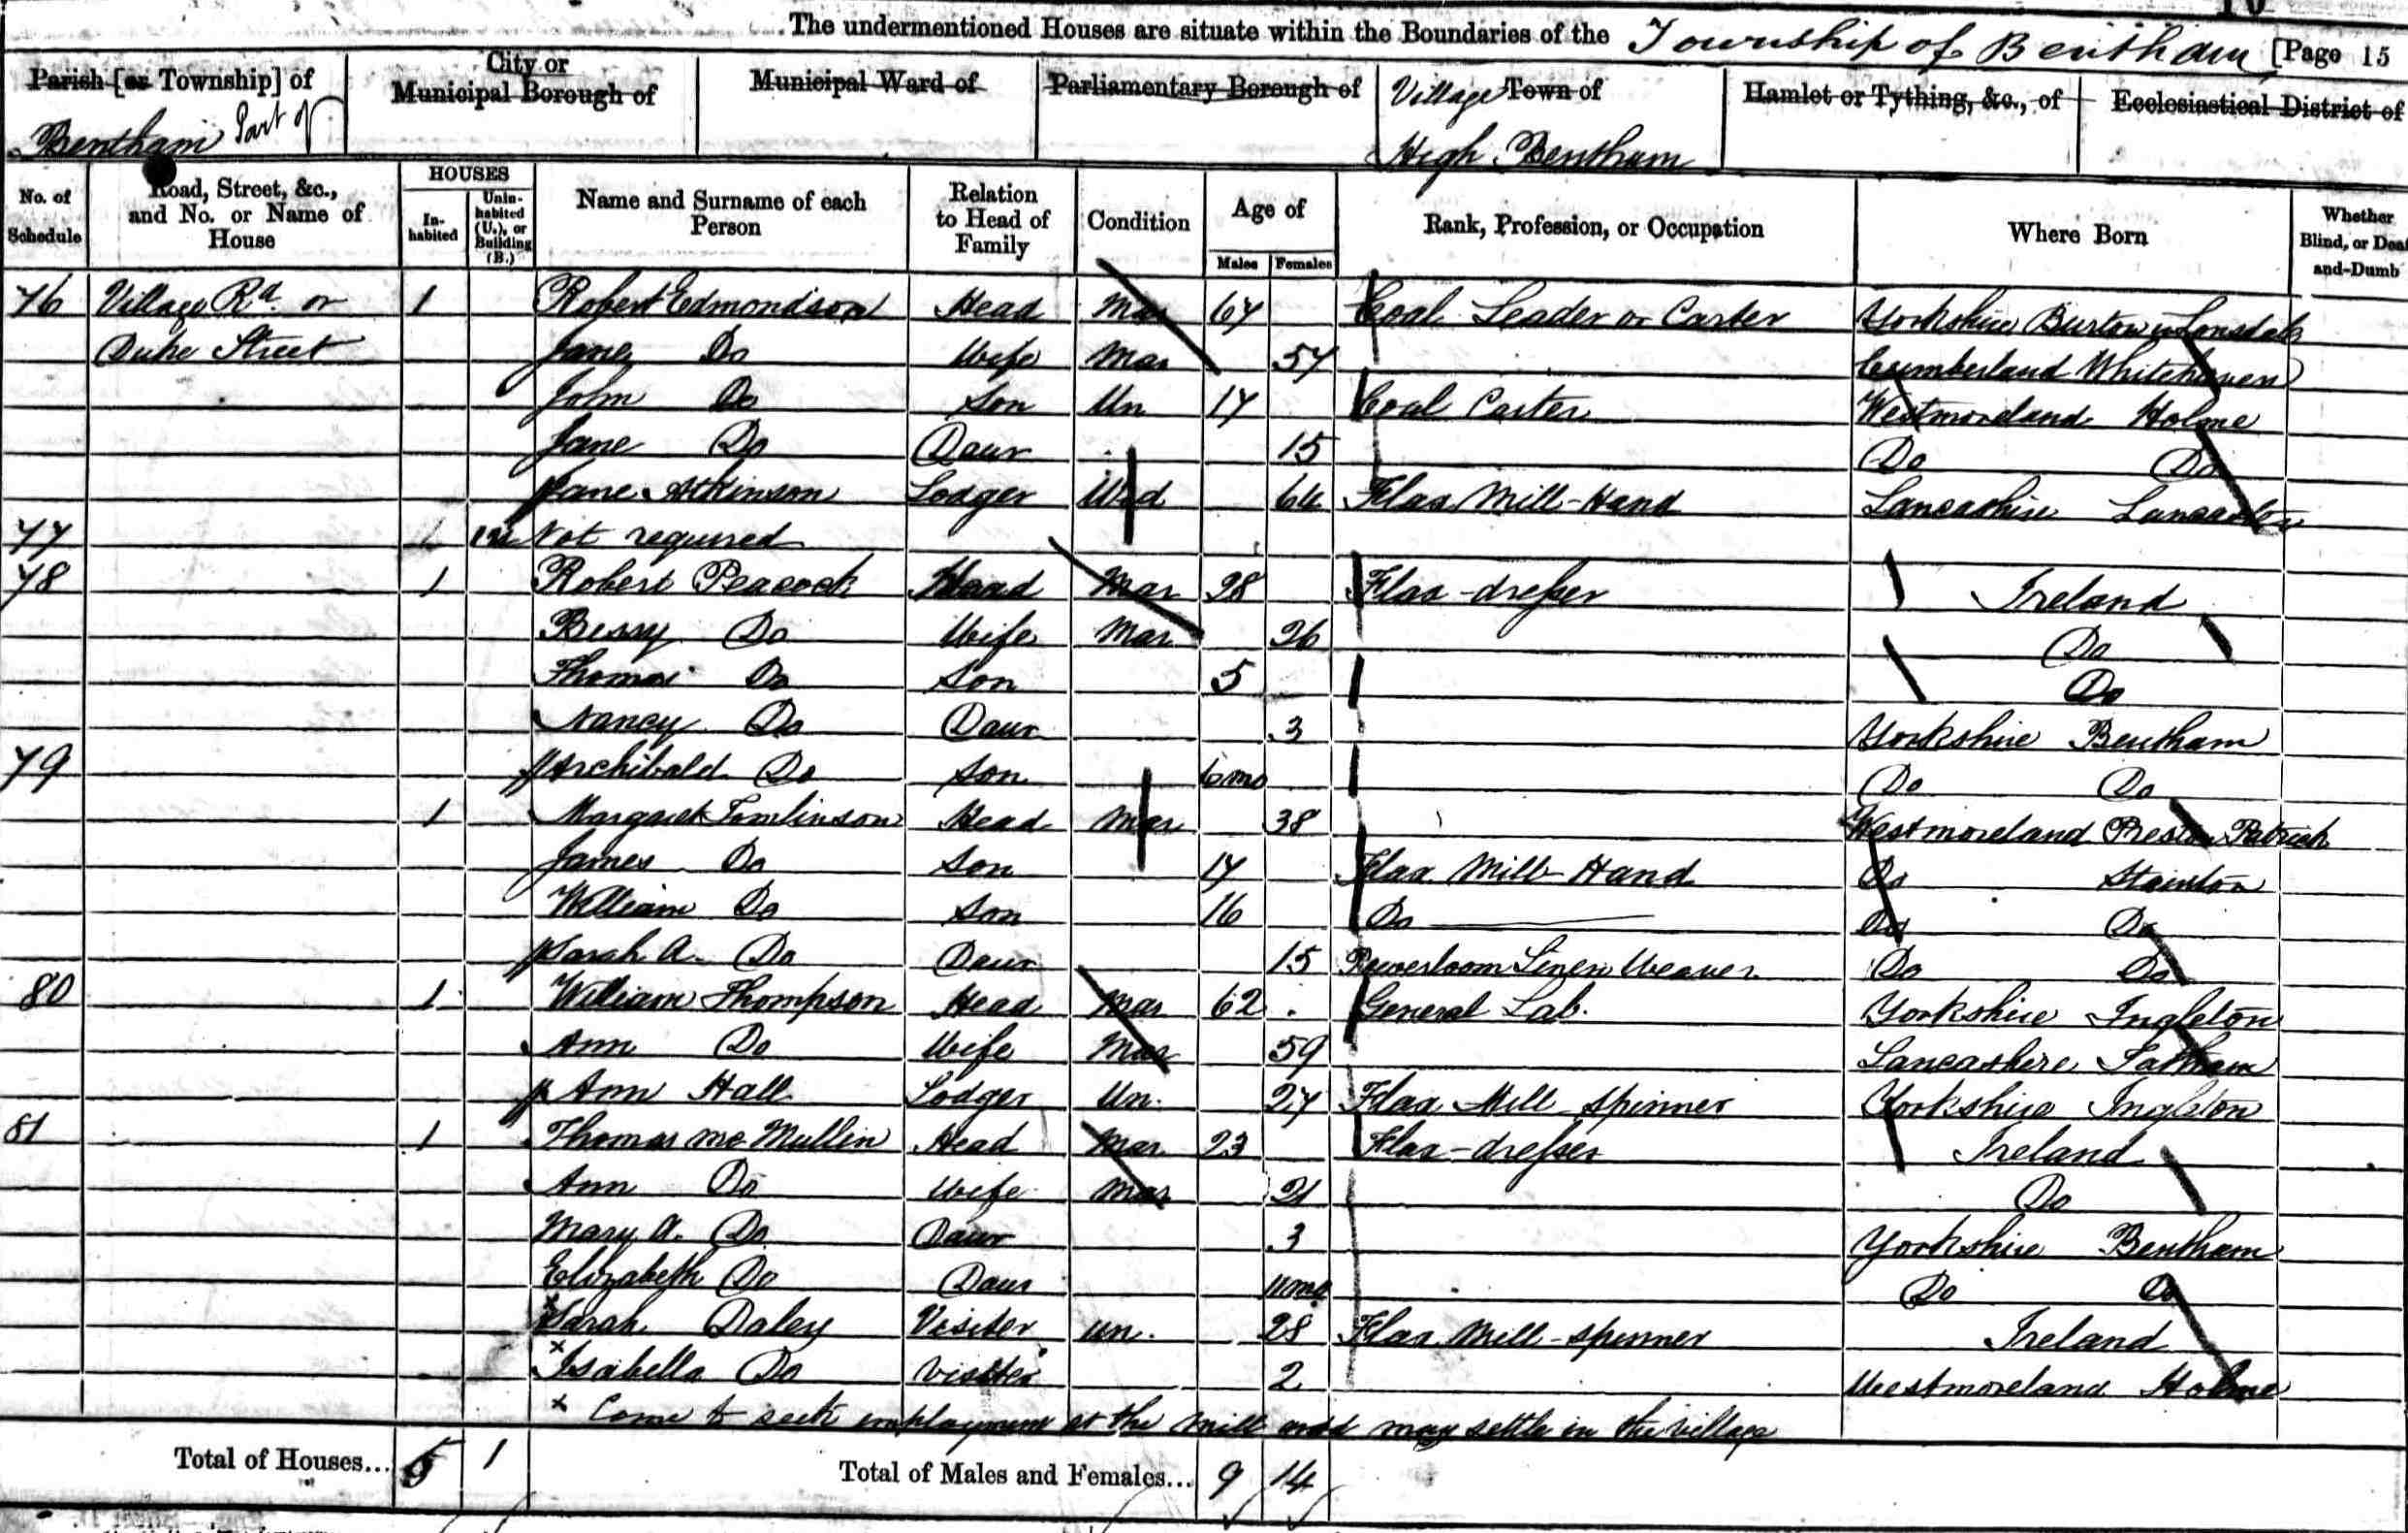 The undermentioned Houses are situate within the Boundaries of the Township of Bentham [Page 15
Parish [or Township] of Bentham Part of
City or Municipal Borough of
Municipal Ward of
Parliamentary Borough of
Village Town of High Bentham
Hamlet or Tything, &c., of
Ecclesiastical District of
No. of Schedule
Road, Street, &c., and No. or Name of House
HOUSES
In-habited
Unin-habited (U.), or Building (B.)
Name and Surname of each Person
Relation to Head of Family
Condition
Age of
Males Females
Rank, Profession, or Occupation
Where Born
Whether Blind, or Deaf-and-Dumb
76 Village Rd. or 1 Robert Edmondson Head Mar 67 Coal Leader or Carter Yorkshire Burton in Lonsdale
Duke Street Jane Do Wife Mar 57 Cumberland Whitehaven
John Do Son Un 17 Coal Carter Westmoreland Holme
Jane Do Daur 15 Do Do
Jane Atkinson Lodger Wid 64 Flax Mill-Hand Lancashire Lancaster
77 1 Not required
78 1 Robert Peacock Head Mar 28 Flax-dresser Ireland
Bessy Do Wife Mar 26 Do
Thomas Do Son 5 Do
Nancy Do Daur 3 Yorkshire Bentham
79 Archibald Do Son 6 mo Do Do
1 Margaret Tomlinson Head Mar 38 Westmoreland Preston Patrick
James Do Son 17 Flax Mill-Hand Do Stainton
William Do Son 16 Do Do Do
Sarah A. Do Daur 15 Powerloom Linen Weaver Do Do
80 1 William Thompson Head Mar 62 General Lab. Yorkshire Ingleton
Ann Do Wife Mar 59 Lancashire Tatham
Ann Hall Lodger Un. 27 Flax Mill spinner Yorkshire Ingleton
81 1 Thomas Mc Mullin Head Mar 23 Flax-dresser Ireland
Ann Do Wife Mar 21 Do
Mary A. Do Daur 3 Yorkshire Bentham
Elizabeth Do Daur 11 mo Do Do
x Sarah Daley Visiter un. 28 Flax Mill-spinner Ireland
x Isabella Do visiter 2 Westmoreland Holme
x Come to seek employment at the mill and may settle in the village
Total of Houses... 5 1 Total of Males and Females... 9 14